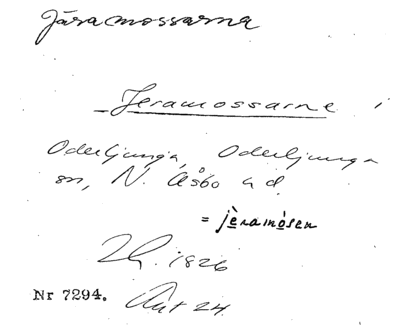 Järamossarna
Jeramossarne i
Oderljunga, Oderljunga
sn, N. Åsbo hd.
= jèramòsen
Lh. 1826
Nr 7294. Akt 24.